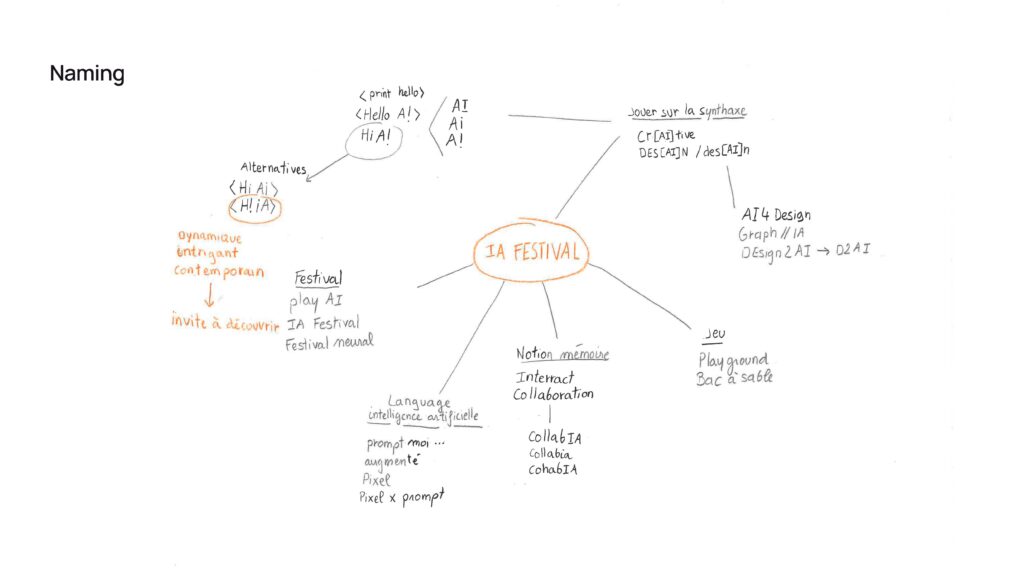 Naming
<print hello>
<Hello A!>
Hi A!
AI
Ai
A!
Jouer sur la synthaxe
Cr[AI]tive
DES[AI]N / des[AI]n
AI4 Design
Graph // IA
DEsign2AI → D2AI
Alternatives
<Hi Ai>
<H!iA>
Dynamique
intrigant
contemporain
↓
invite à découvrir
IA FESTIVAL
Festival
play AI
IA Festival
Festival neural
Language
intelligence artificielle
prompt moi ...
augmenté
Pixel
Pixel x prompt
Notion mémoire
Interract
Collaboration
CollabIA
Collabia
CohabIA
Jeu
Playground
Bac à sable